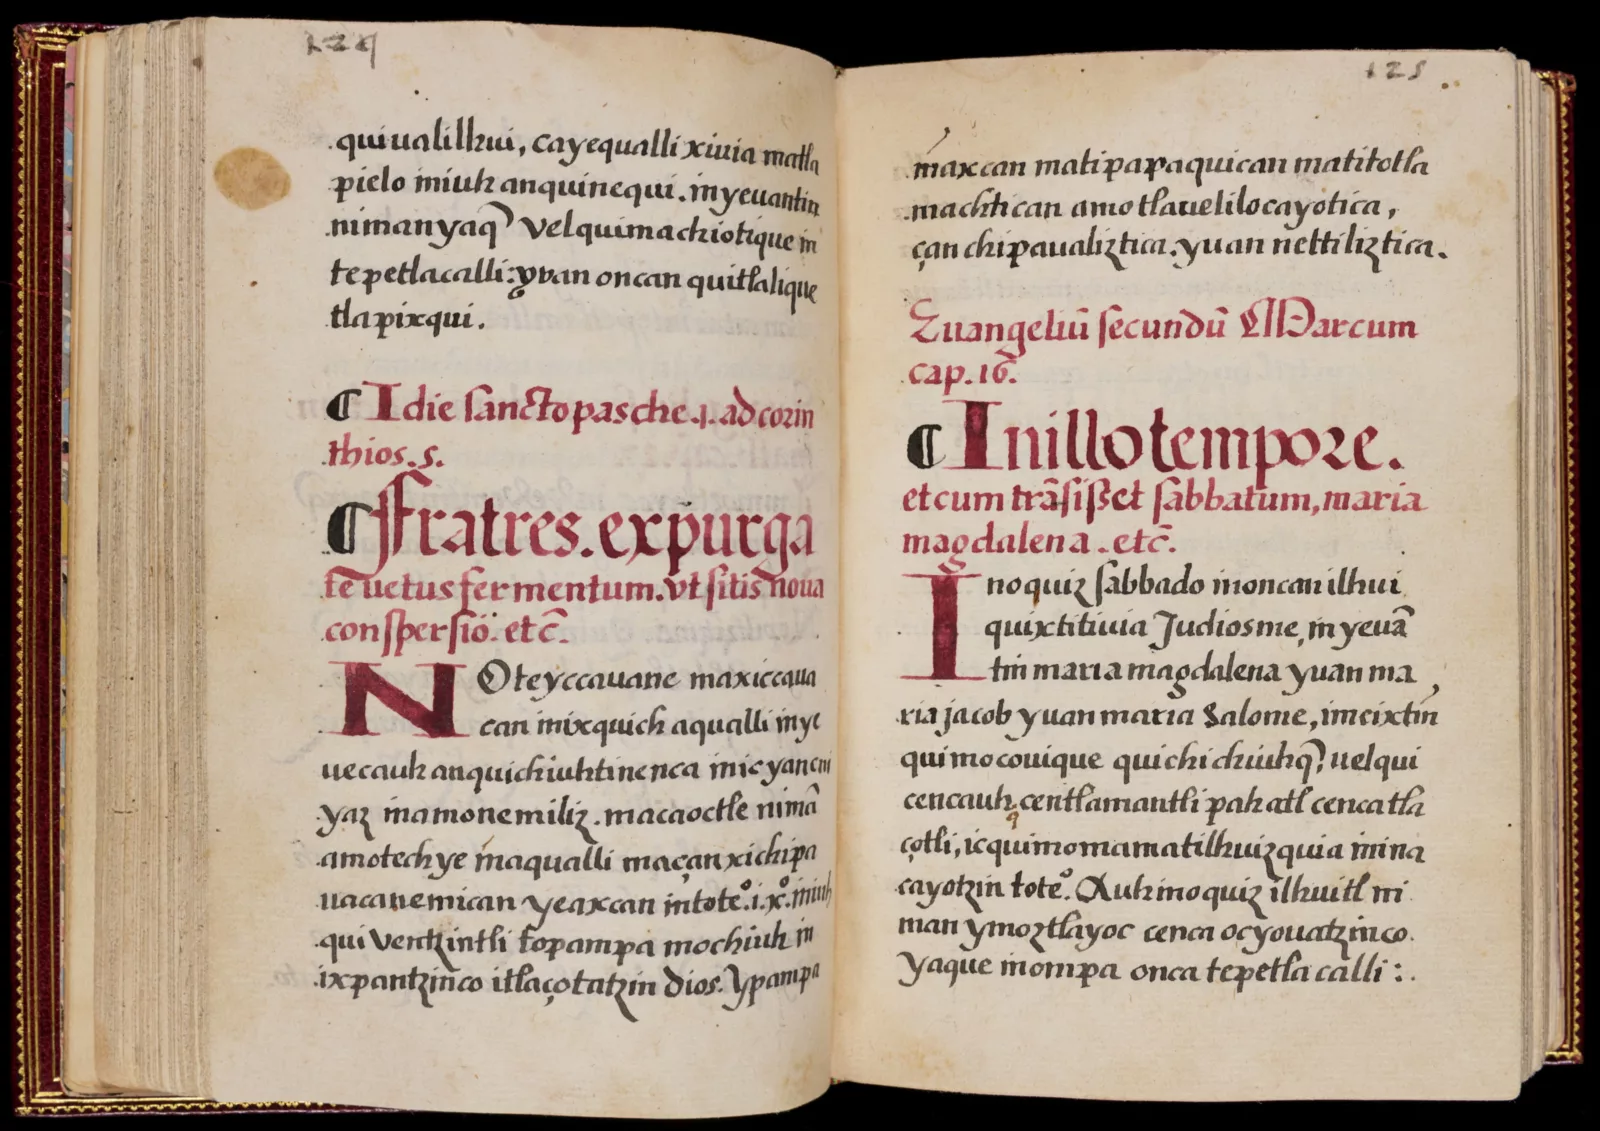 124
quiualilhui, cayequalli xiuia matla
pielo iniuh anquinequi. inyeuantin
nimanyaq̄ velquimachiotique in
tepetlacalli: yvan oncan quitlalique
tlapixqui.
¶ I die sancto pasche .1. ad corin
thios. 5.
¶ Fratres. expurga
te uetus fermentum. vt sitis noua
conspersiō. etc̄.
NOteyccauane maxiccaua
can inixquich aqualli inye
uecauh anquichiuhtinenca inic yancui
yaz inamonemiliz. macaoctle nimā
amotechye inaqualli maçan xichipa
uacanemican yeaxcan intoteº. i. xº. iniuh
qui ventzintli topampa mochiuh in
ixpantzinco itlaçotatzin Dios. Ypampa
125
inaxcan matipapaquican matitotla
machtican amo tlauelilocayotica,
çan chipaualiztica. yuan neltiliztica.
Euangeliū secundū Marcum
cap. 16.
¶ Inillo tempore.
et cum trāsisset sabbatum, maria
magdalena. etc̄.
Inoquiz sabbado inoncan ilhui
quixtitiuia Judiosme, inyeuā
tin maria magdalena yuan ma
ria jacob yuan maria Salome, imeixtin
quimocouique quichichiuhq̄, uelqui
cencauhq̄ centlamantli pahatl cenca tla
çotli, ic quimomamatilhuizquia inina
cayotzin toteº. Auh inoquiz ilhuitl ni
man ymoztlayoc cenca ocyouatzinco
yaque inompa onca tepetlacalli:.